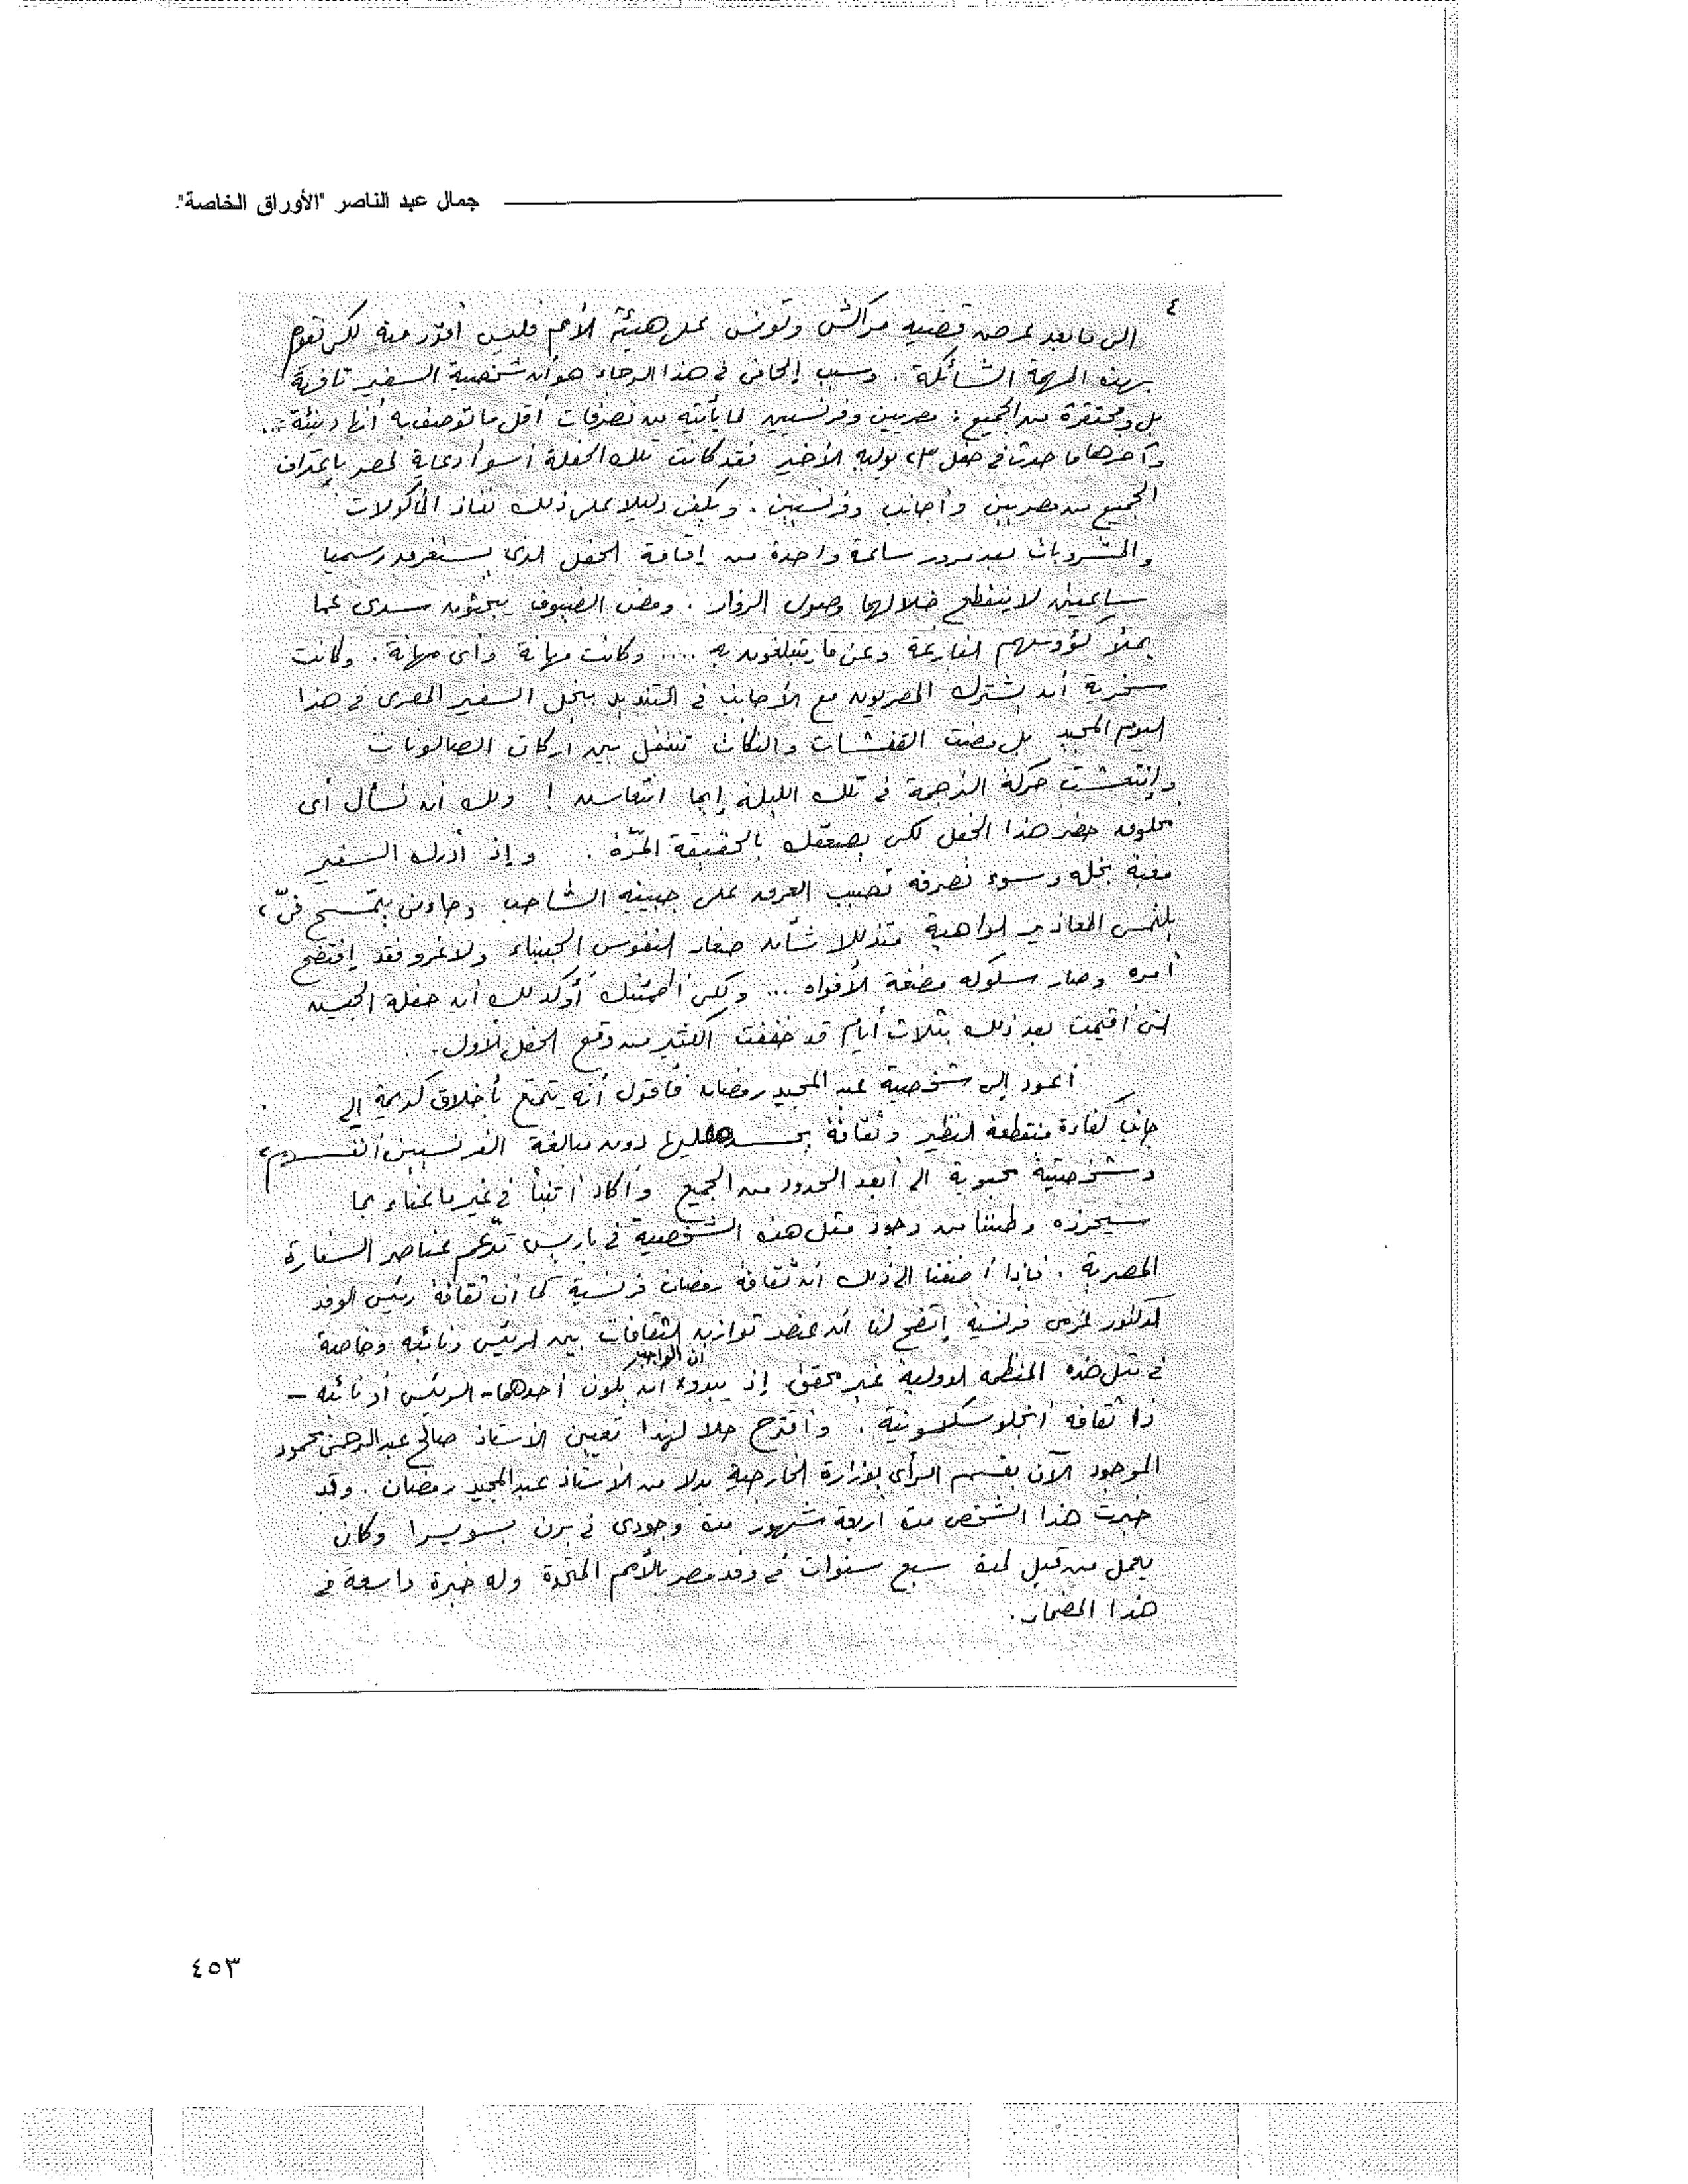 جمال عبد الناصر "الأوراق الخاصة".
٤
الى ما بعد عرض قضية مراكش وتونس على هيئة الأمم فليس أقدر منه لكى تقوم
بهذه المهمة الشائكة. وسبب إلحافى فى هذا الرجاء هو أن شخصية السفير تافهة
بل ومحتقرة من الجميع: مصريين وفرنسيين لما يأتيه من تصرفات أقل ما توصف به أنها دنيئة ...
وآخرها ما حدث فى حفل ٢٣ يوليه الأخير فقد كانت تلك الحفلة أسوأ دعاية لمصر باعتراف
الجميع من مصريين وأجانب وفرنسيين. ويكفى دليلا على ذلك نفاذ المأكولات
والمشروبات بعد مرور ساعة واحدة من إقامة الحفل الذى يستغرق رسميا
ساعتين لا ينقطع خلالهما وصول الزوار. ومضى الضيوف يبحثون سدى عما
يملأ كؤوسهم الفارغة وعن ما يتبلغون به .... وكانت مهانة وأى مهانة. وكانت
سخرية أن يشترك المصريون مع الأجانب فى التنديد ببخل السفير المصرى فى هذا
اليوم المجيد بل مضت القفشات والنكات تنتقل بين اركان الصالونات
وإنتعشت حركة الترجمة فى تلك الليلة إيما انتعاش! ولك أن تسأل أى
مخلوق حضر هذا الحفل لكى يصعقك بالحقيقة المرّة. وإذ أدرك السفير
مغبة بخله وسوء تصرفه تصبب العرق على جبينه الشاحب وجاءنى يتمسح فىّ،
يلتمس المعاذير الواهية متذللا شأن صغار النفوس الجبناء ولا غرو فقد إفتضح
أمره وصار سلوكه مضغة الأفواه ... ولكى أطمئنك أؤكد لك أن حفلة الجيش
التى أقيمت بعد ذلك بثلاث أيام قد خففت الكثير من وقع الحفل الأول.
أعود إلى شخصية عبد المجيد رمضان فأقول أنه يتمتع بأخلاق كريمة إلى
جانب كفاءة منقطعة النظير وثقافة يحسده عليها دون مبالغة الفرنسيين أنفسهم،
وشخصية محبوبة الى أبعد الحدود من الجميع وأكاد أتنبأ فى غير ما عناء بما
سيحرزه وطننا من وجود مثل هذه الشخصية فى باريس تدعّم عناصر السفارة
المصرية. فإذا أضفنا الى ذلك أن ثقافة رمضان فرنسية كما أن ثقافة رئيس الوفد
الدكتور عزمى فرنسية إتضح لنا أن عنصر توازن الثقافات بين الرئيس ونائبه وخاصة
فى مثل هذه المنظمه الدولية غير محقق إذ يبدو أن الواجب أن يكون أحدهما - الرئيس أو نائبه -
ذا ثقافة أنجلوسكسونية. وأقترح حلا لهذا تعيين الأستاذ صالح عبدالرحمن محمود
الموجود الآن بقسم الرأى بوزارة الخارجية بدلا من الأستاذ عبدالمجيد رمضان. وقد
خبرت هذا الشخص مدة اربعة شهور مدة وجودى فى برن بسويسرا وكان
يعمل من قبل لمدة سبع سنوات فى وفد مصر بالأمم المتحدة وله خبرة واسعة فى
هذا المضمار.
٤٥٣